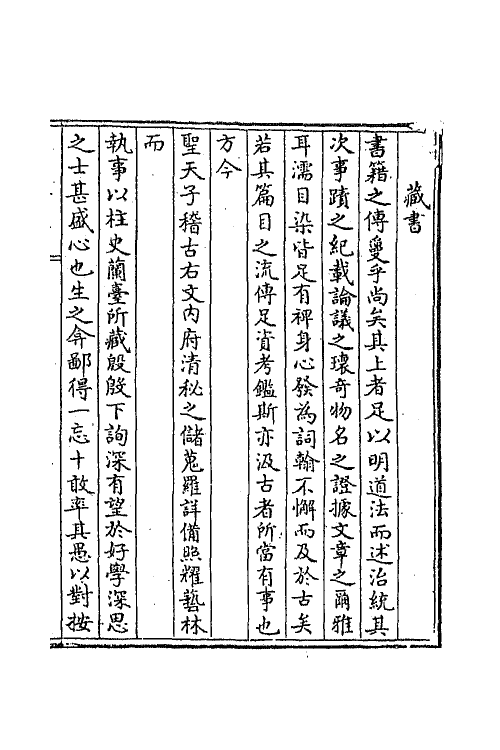 藏書
書籍之傳夐乎尚矣其上者足以明道法而述治統其
次事蹟之紀載論議之瓌奇物名之證據文章之爾雅
耳濡目染皆足有裨身心發為詞翰不懈而及於古矣
若其篇目之流傳足資考鑑斯亦汲古者所當有事也
方今
聖天子稽古右文内府清秘之儲蒐羅詳備照耀藝林
而
執事以柱史蘭臺所藏殷殷下詢深有望於好學深思
之士甚盛心也生之弇鄙得一忘十敢率其愚以對按